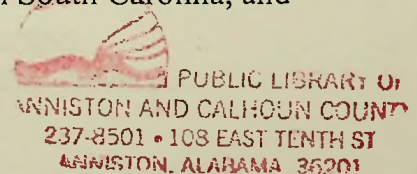 South Carolina, and
PUBLIC LIBRARY OF
ANNISTON AND CALHOUN COUNTY
237-8501 • 108 EAST TENTH ST
ANNISTON, ALABAMA 36201